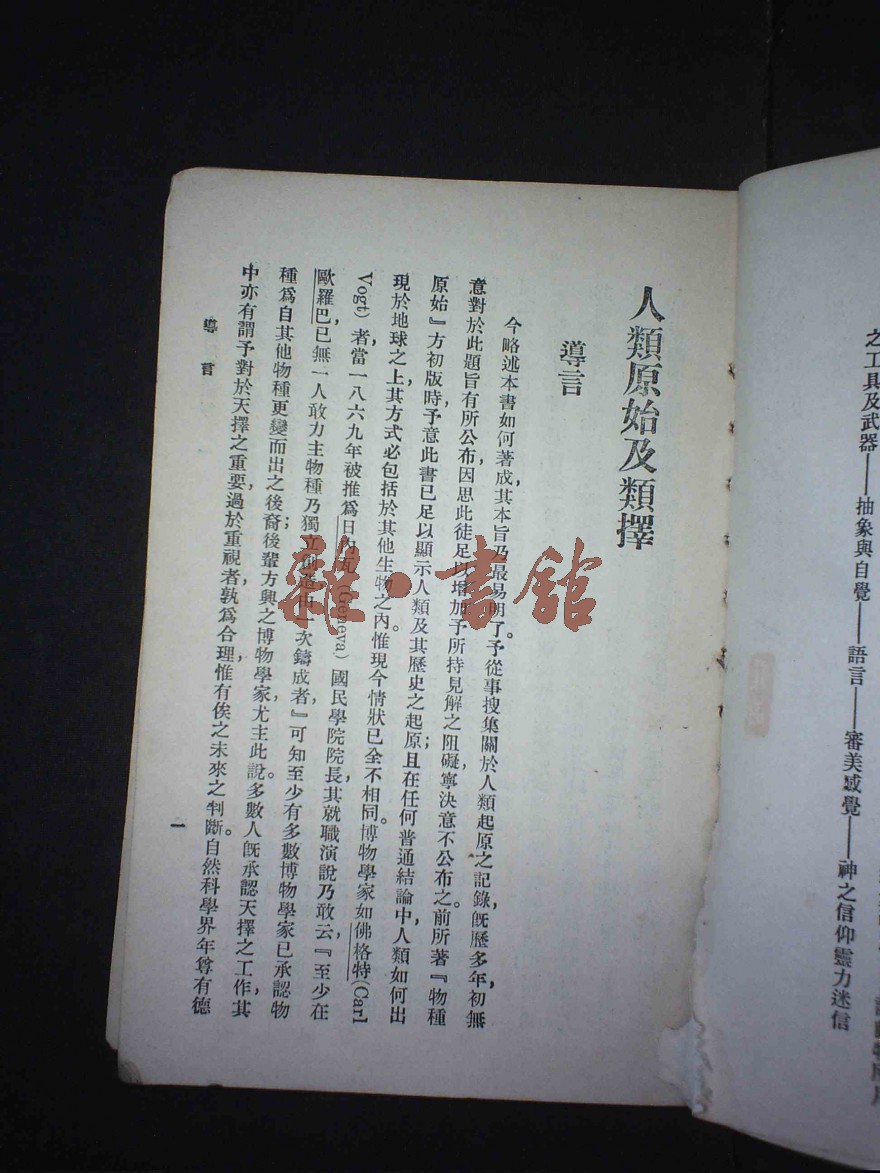 之工具及武器——抽象與自覺——語言——審美感覺——神之信仰靈力迷信
人類原始及類擇
導言
今略述本書如何著成，其本旨乃最易明了。予從事搜集關於人類起原之記錄，既歷多年，初無
意對於此題旨有所公布，因思此徒足以增加予所持見解之阻礙，寧決意不公布之。前所著『物種
原始』方初版時，予意此書已足以顯示人類及其歷史之起原；且在任何普通結論中，人類如何出
現於地球之上，其方式必包括於其他生物之內。惟現今情狀已全不相同。博物學家如佛格特(Carl
Vogt)者，當一八六九年被推爲日內瓦(Geneva)國民學院院長，其就職演說乃敢云『至少在
歐羅巴，已無一人敢力主物種乃獨立創造，由一次鑄成者。』可知至少有多數博物學家已承認物
種爲自其他物種更變而出之後裔；後輩方興之博物學家，尤主此說。多數人既承認天擇之工作，其
中亦有謂予對於天擇之重要，過於重視者，孰爲合理，惟有俟之未來之判斷。自然科學界年尊有德
導言
一
雜·書館